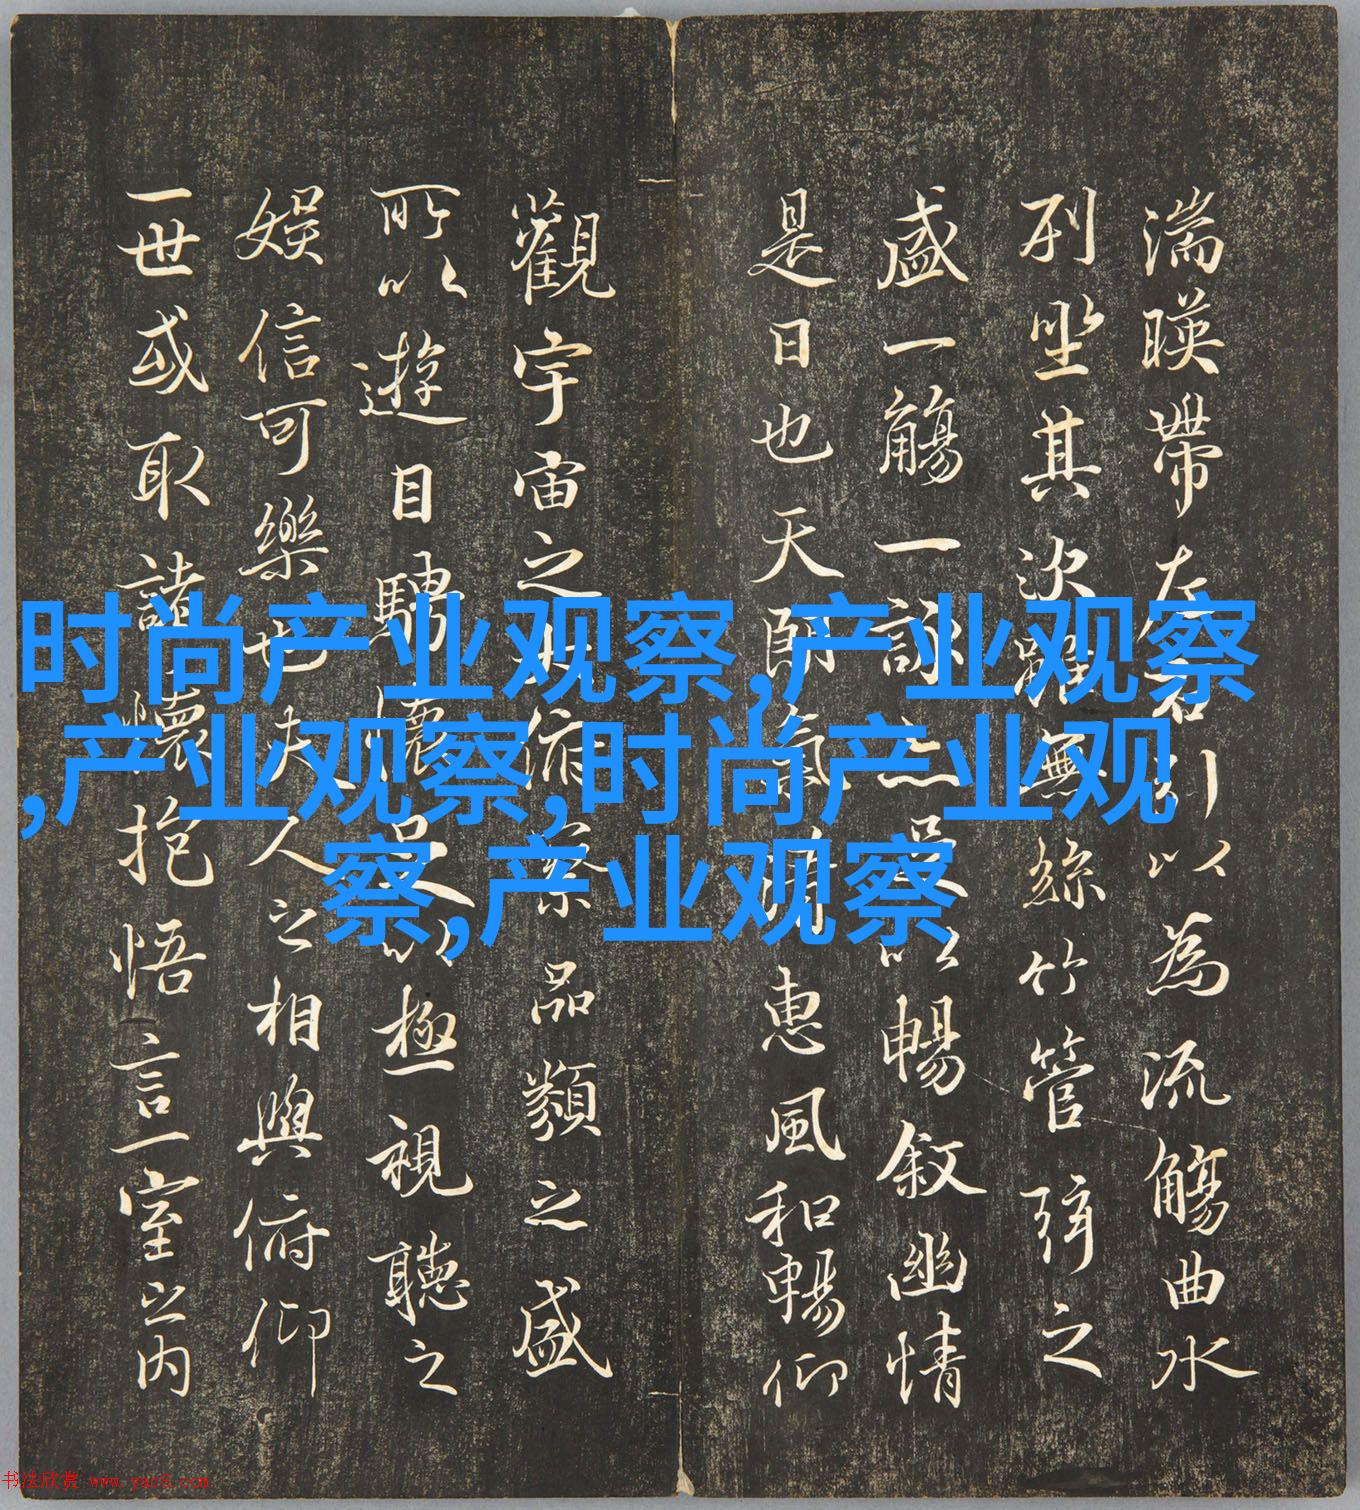 湍暎帶左右引以為流觴曲水
列坐其次雖無絲竹管弦之
盛一觴一詠亦足以暢敘幽情
是日也天朗氣清惠風和暢仰
觀宇宙之大俯察品類之盛
所以遊目騁懷足以極視聽之
娛信可樂也夫人之相與俯仰
一世或取諸懷抱悟言一室之内
时尚产业观察,产业观察
,产业观察,时尚产业观
察,产业观察
书法欣赏 www.yac8.com